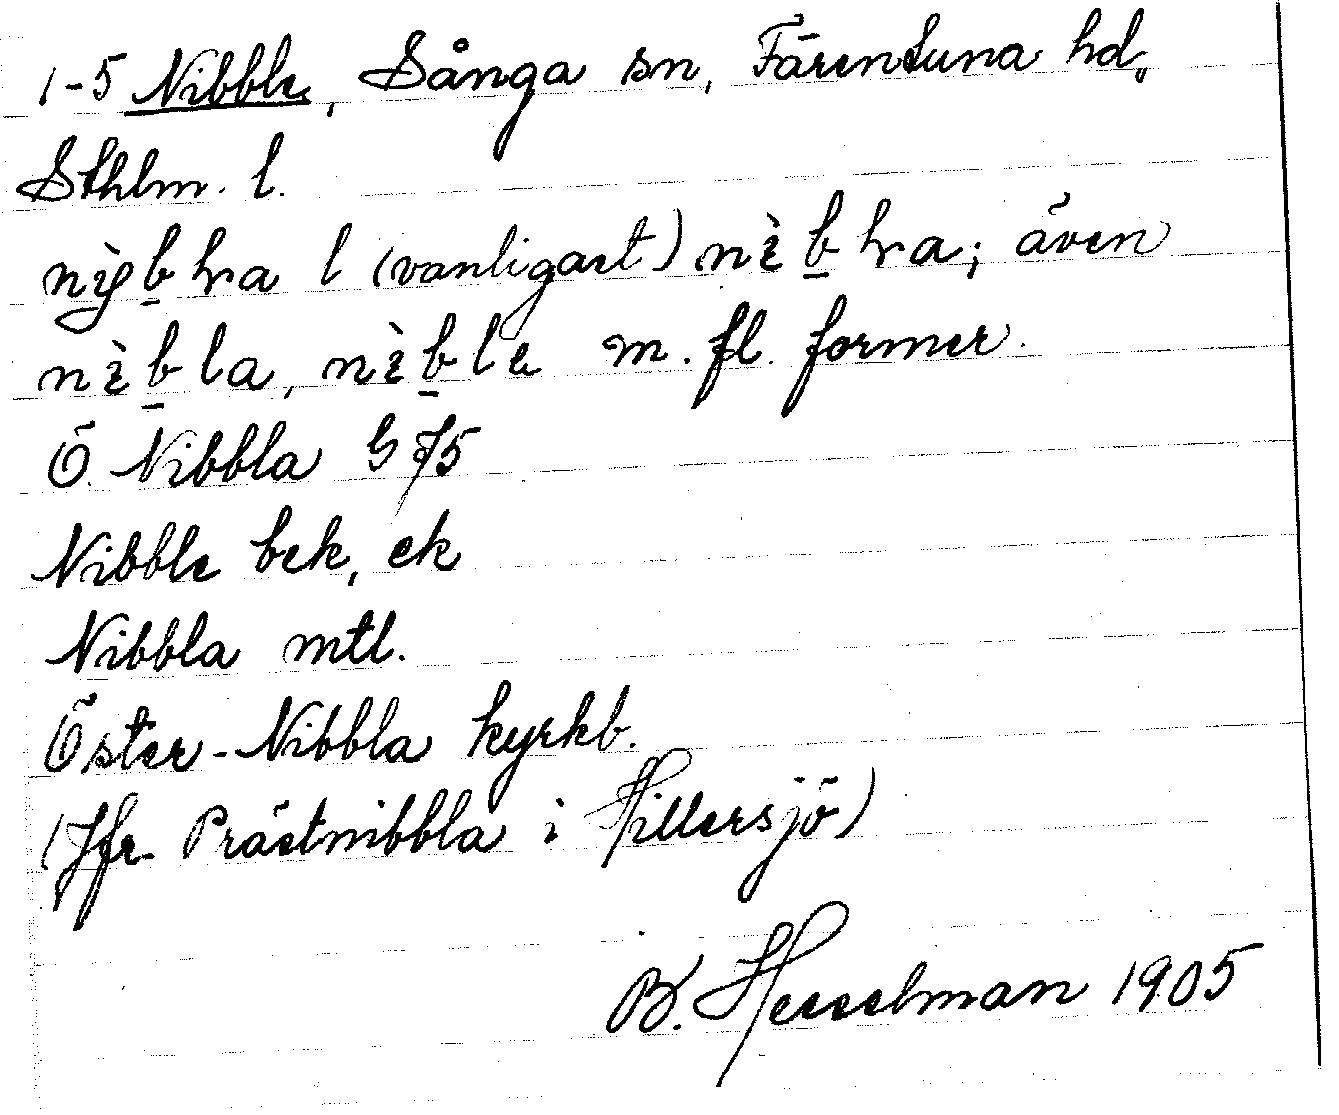 1-5 Nibble, Sånga sn, Färentuna hd,
Sthlm. l.
(vanligast) även
m. fl. former.
Ö. Nibbla G 75
Nibble bek, ek
Nibbla mtl.
Öster-Nibbla kyrkb.
(Jfr Prästnibbla i Hillersjö)
B. Hesselman 1905